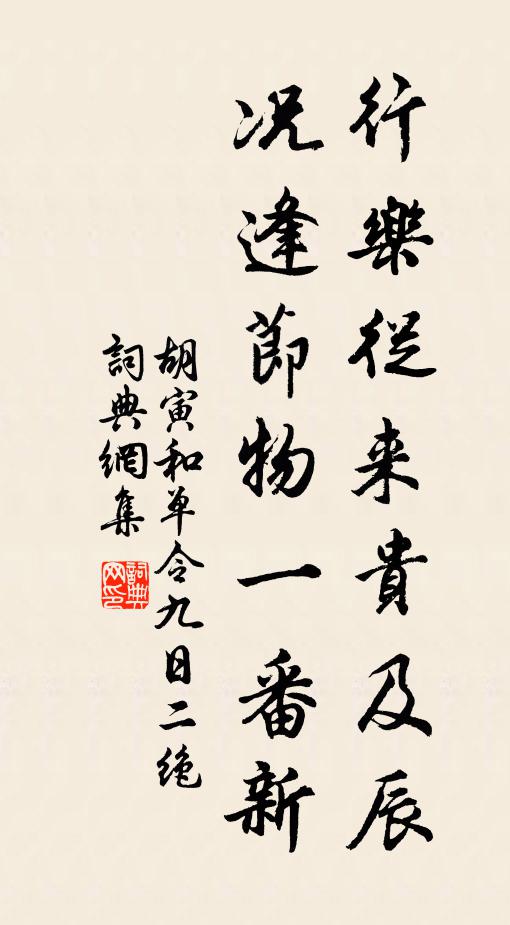 行樂從来貴及辰
况逢節物一番新
胡寅和单令九日二绝
詞典網集
詞典网印